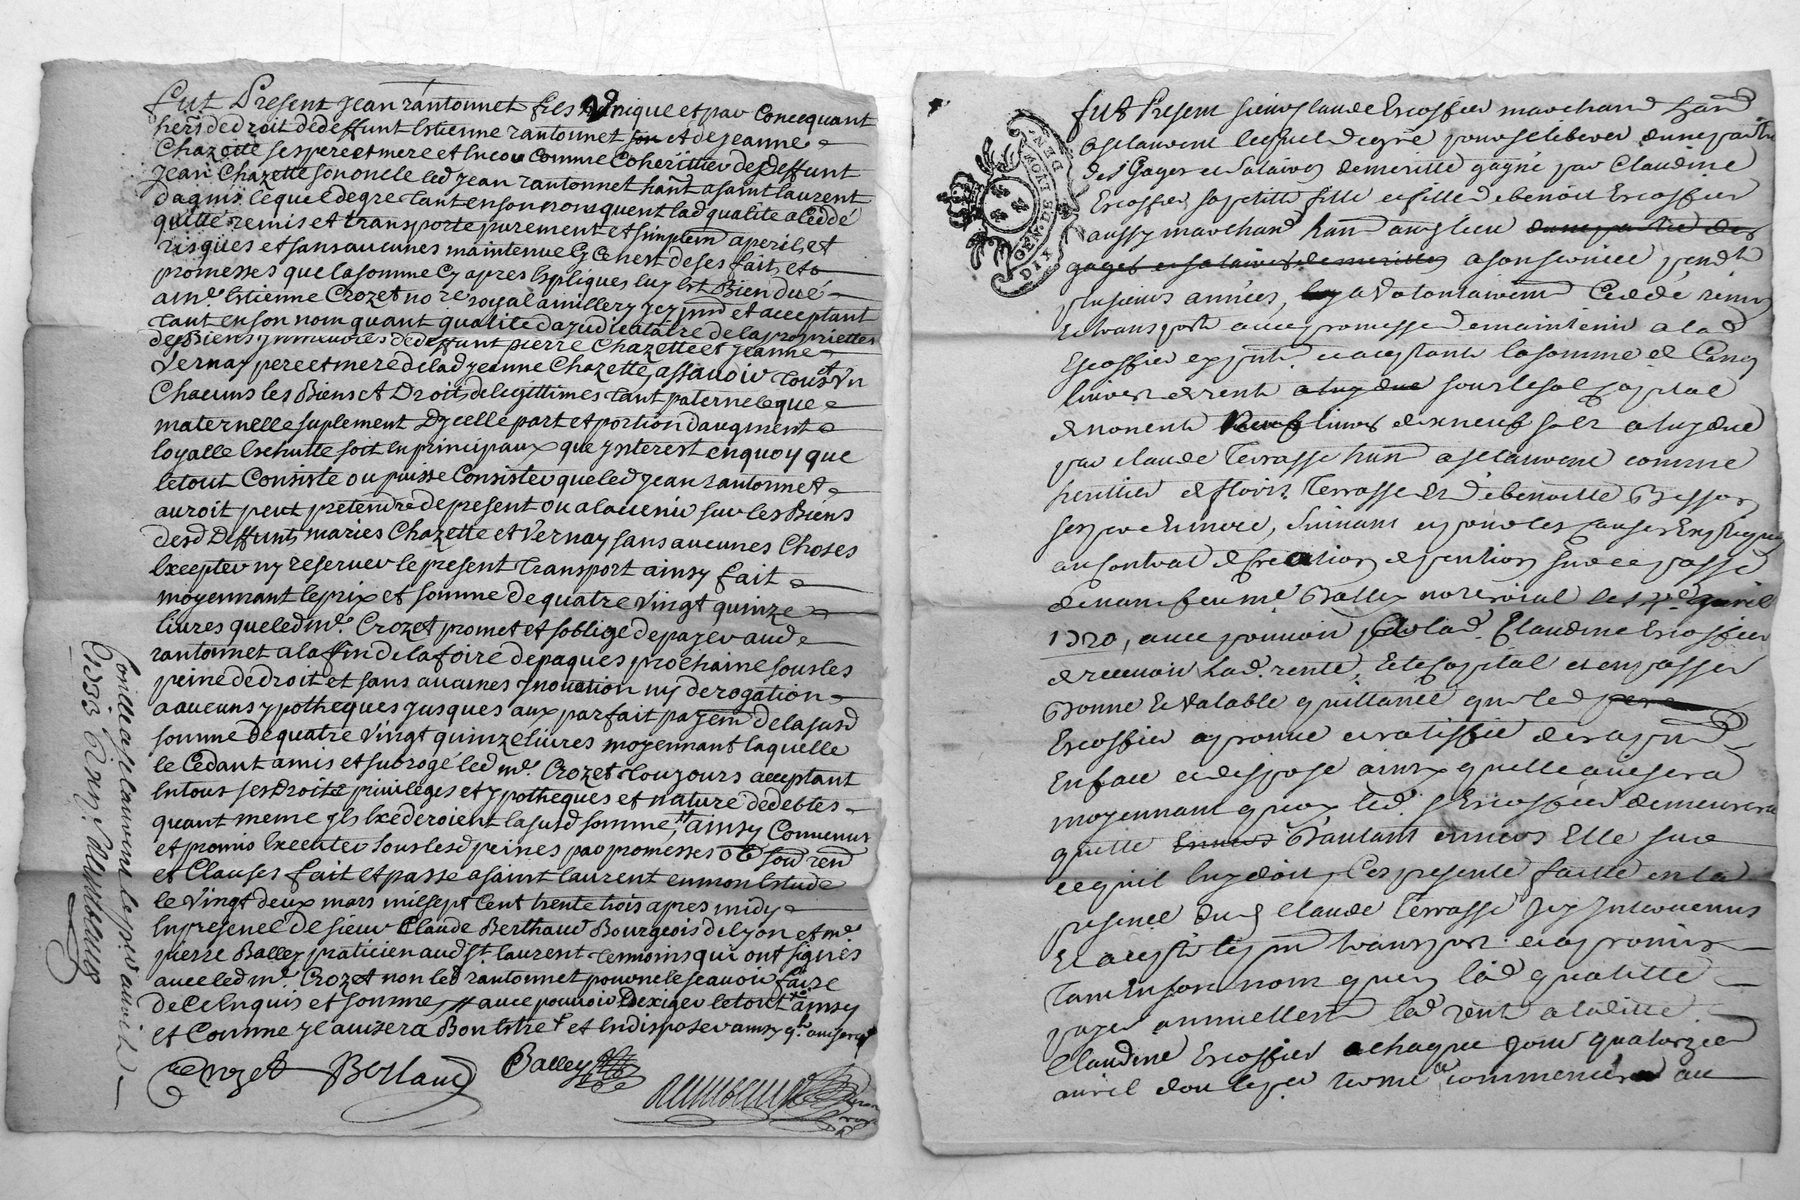 fut Present Jean rantonnet fils Unique et par Concequant
hers de droit de deffunt Estienne rantonnet son et de jeanne
Chazette ses pere et mere et encor Comme Coherittier de deffunt
Jean Chazette son oncle led jean rantonnet hant a saint laurent
dagnis lequel degre tant en son nom quen lad qualite a Ceddé
quitté remis et transporte purement et simplem a peril et
risques et sans aucunes maintenue
promesses que la somme Cy apres Expliquee luy Est Bien dué
a me Estienne Crozet no re royal a millery Jcy pnt et acceptant
tant en son nom quant qualite dajudicataire de la proprietter
des Biens jmmeubles de deffunt pierre Chazette et jeanne
Vernay pere et mere de lad jeanne Chazette, assavoir tous Un
Chacuns les Biens et Droits de legittimes tant paternele que
maternelle suplement Dycelle part et portion daugment
loyalle Eschutte soit En principaux que ynterest en quoy que
le tout Consiste ou puisse Consister que led jean rantonnet
auroit peut pretendre de present ou a lavenir sur les Biens
desd Deffunts maries Chazette et Vernay sans aucunes Choses
Excepter ny reserver le present transport ainsy fait
moyennant le prix et somme de quatre Vingt quinze
livres que led me. Crozet promet et soblige de payer aud
rantonnet a la fin de la foire de paques prochaine sous les
peine de droit et sans aucunes jnovation ny derogation
a aucuns ypotheques jusques aux parfait payem de la susd
somme de quatre Vingt quinze livres moyennant laquelle
le Cedant a mis et subrogé led me. Crozet toujours acceptant
En tous ses droits privileges et ypotheques et nature de debtes
quant meme jls Excederoient la susd somme, ainsy Convenus
et promis Executer sous lesd peines par promesses ob soum ren
et Clauses fait et passé a saint laurent en mon Estude
le Vingt deux mars mil sept Cent trente trois apres midy
En presence de sieur Claude Berthaud Bourgeois de lyon et me
pierre Balley praticien aud st. laurent temoins qui ont signés
avec led me. Crozet non led rantonnet pour ne le scavoir faire
de Ce Enquis et somme avec pouvoir dexiger le tout ainsy
et Comme jl avisera Bon Estre et En disposer ainsy ql. avisera
Crozet Berthaud Balley
Controllé a st laurent le avril
1733
fut Present sieur claude Escoffier marchand hant
a st laurent lequel de gré pour se liberer dune partie
des Gages et Salaires de merittée gagné par Claudine
Escoffier sa petitte fille et fille de benoit Escoffier
aussy marchand hant aud lieu dune partie des
gages et salaires de merittes a son service pendt
plusieurs années, luy a Volontairem Ceddé remis
Et transporté avec promesse de maintenir a lad
Escoffier cy pnte et acceptante la somme de Cinq
livres de rente a luy due sous le sol capital
de nonente neuf livres dix neuf sols a luy deue
par claude Terrasse hant a st laurent comme
heritier de fleurs Terrasse et de benoitte Besson
ses pere et mere, suivant et pour les causes Expliquées
au Contrat de Creation de pention sur ce passé
devant feu me Balley no roial le avril
1720, avec pouvoir lad. Claudine Escoffier
de recevoir lad. rente, Et le Capital et en passer
Bonne et Valable quittance que led pere
Escoffier aprouve et ratiffie des apnt
En face et dispose ainsy quelle avisera
moyennant quoy led sr Escoffier demeurera
quitte Envers d'autant envers Elle sur
ce quil luy doit, Ces presente faitte en la
presence dud claude Terrasse Jcy Jntervenus
Et accepté le pnt transport et a promis
Tant En son nom quen lad qualitté
payer annuellem lad rente a laditte
Claudine Escoffier a chaque jour quatorze
avril dont le per terme commencera au
DIX DEN
GEN DE LYON